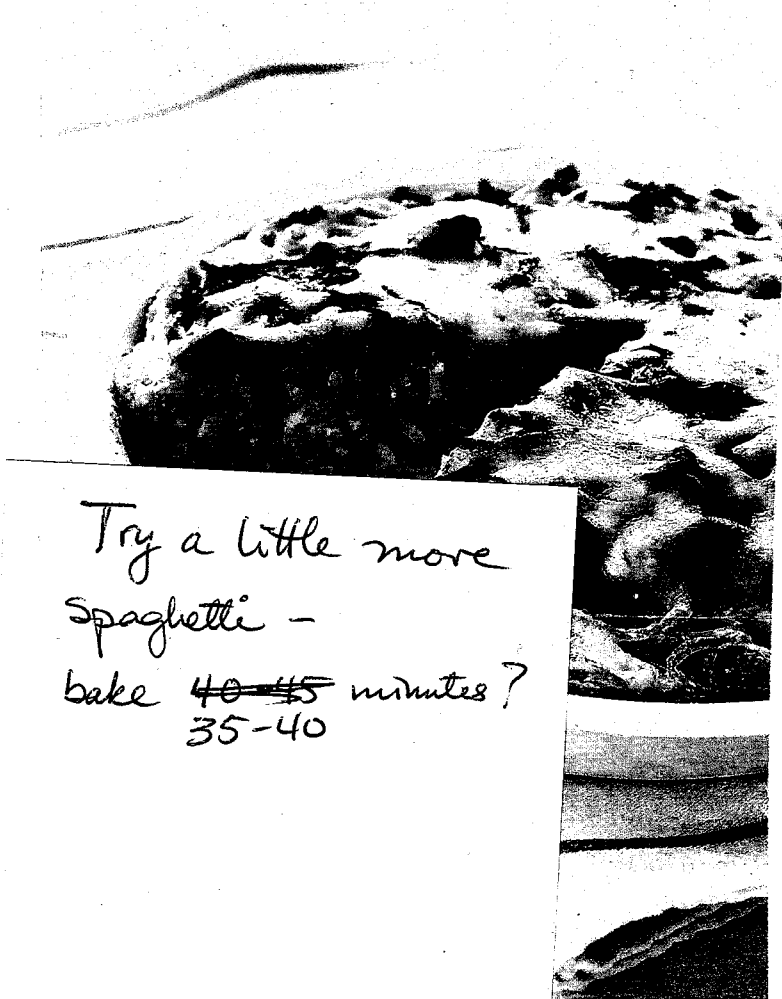 Try a little more
spaghetti -
bake ~~40-45~~ minutes?
35-40